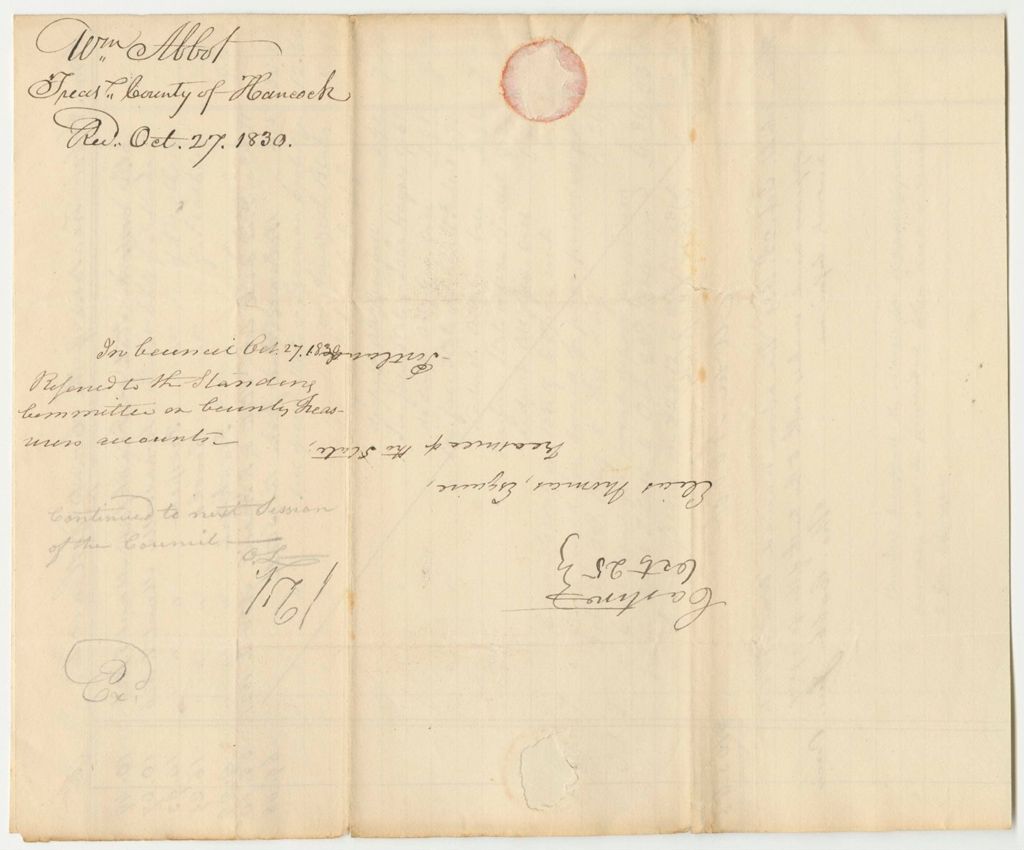 Wm Abbot
Treasr. County of Hancock
Recd. Oct. 27. 1830.
In Council Oct. 27. 1830
Referred to the Standing
Committee on County Treas-
urers accounts
Continued to next Session
of the Council
Exd.
Castine
Oct 25
Elias Thomas, Esquire,
Treasurer of the State,
Portland